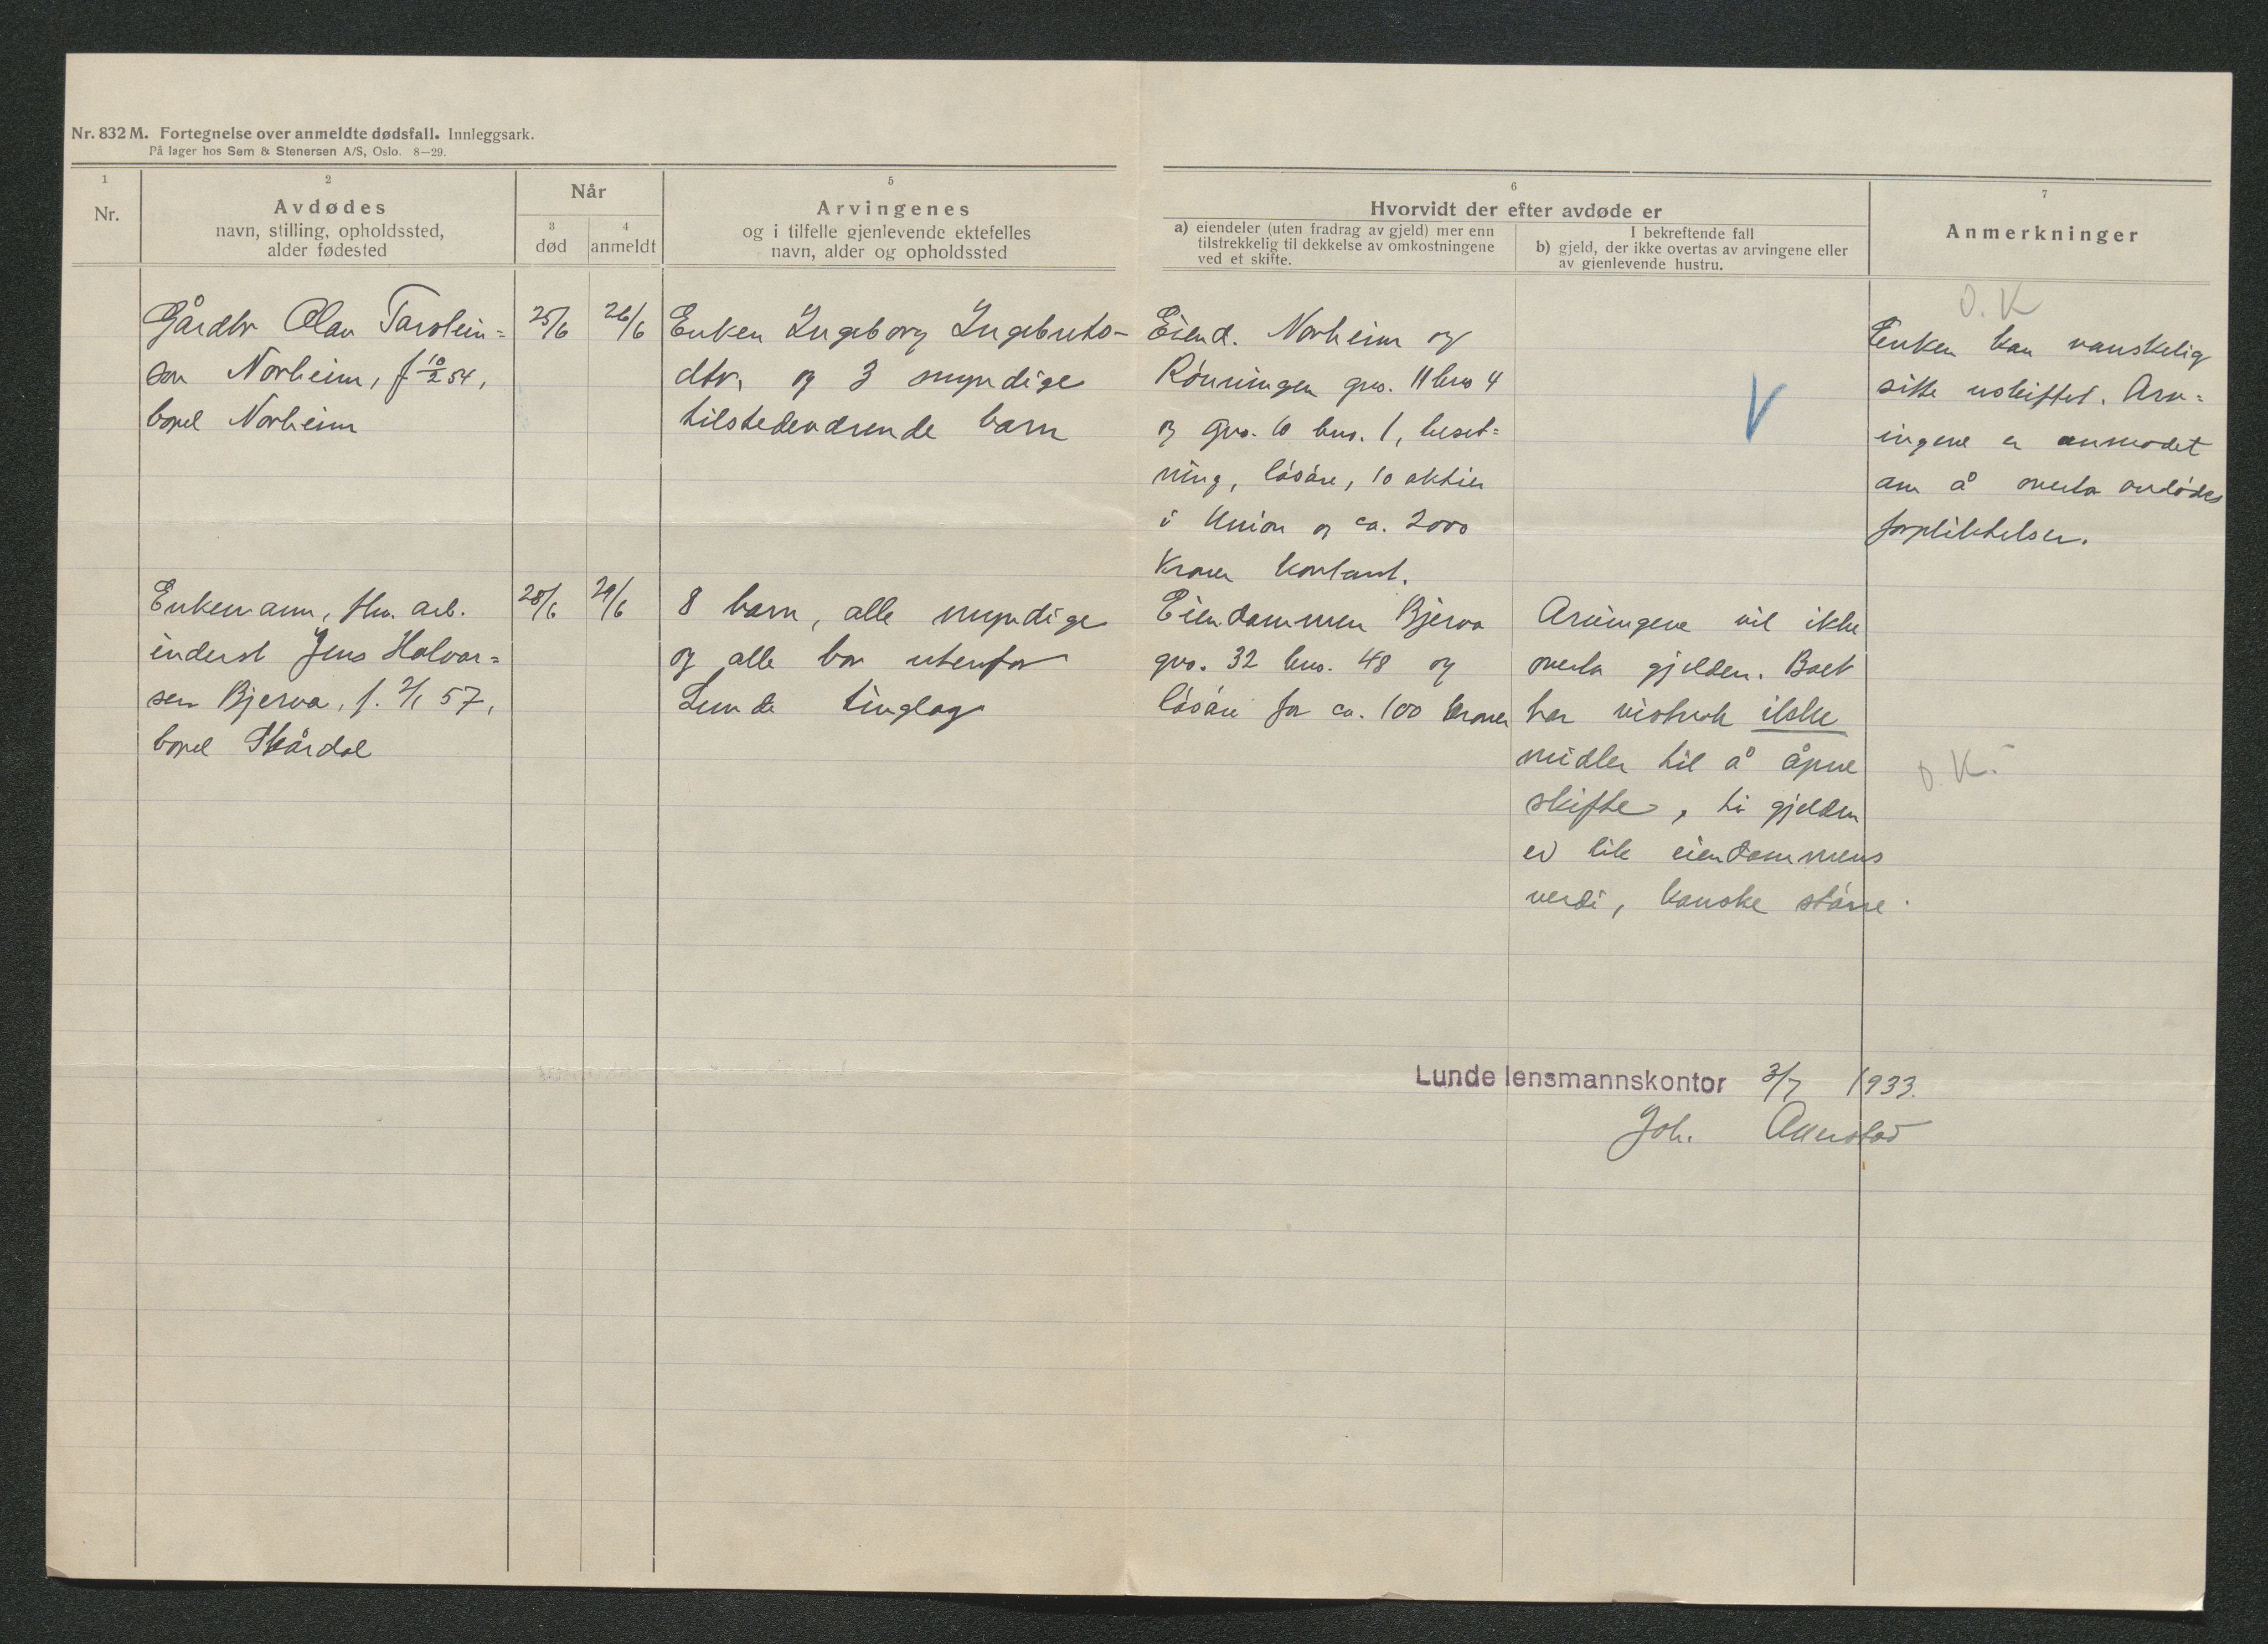 Nr. 832 M. Fortegnelse over anmeldte dødsfall. Innleggsark.
På lager hos Sem & Stenersen A/S, Oslo. 8—29.
1
Nr.
2
Avdødes
navn, stilling, opholdssted,
alder fødested
Når
3
død
4
anmeldt
5
Arvingenes
og i tilfelle gjenlevende ektefelles
navn, alder og opholdssted
6
Hvorvidt der efter avdøde er
a) eiendeler (uten fradrag av gjeld) mer enn
tilstrekkelig til dekkelse av omkostningene
ved et skifte.
I bekreftende fall
b) gjeld, der ikke overtas av arvingene eller
av gjenlevende hustru.
7
Anmerkninger
Gårdbr Olav Tarolein=
son Norheim, f 10/2 54,
bopel Norheim
25/6
26/6
Enken Ingeborg Ingebrets-
dtr. og 3 myndige
tilstedeværende barn
Eiend. Norheim og
Rönningen gno. 11 bno 4
og gno. 10 bno. 1, beset=
ning, lösöre, 10 aktier
i Union og ca. 2000
kroner kontant.
V
O.K
Enken kan vanskelig
sitte uskiftet. Arv=
ingene er anmodet
om å overta avdödes
forpliktelser.
Enkemann, fhv. arb.
inderst Jens Halvor=
sen Bjerva, f. 2/1 57,
bopel Skårdal
28/6
29/6
8 barn, alle myndige
og alle bor utenfor
Lunde tinglag
Eiendommen Bjerva
gno. 32 bno. 48 og
lösöre for ca. 100 kroner
Arvingene vil ikke
overta gjelden. Boet
har visstnok ikke
midler til å åpne
skifte, ti gjelden
er lik eiendommens
verdi, kanske större.
O.K.
Lunde lensmannskontor 3/7 1933.
Joh. Akerstad